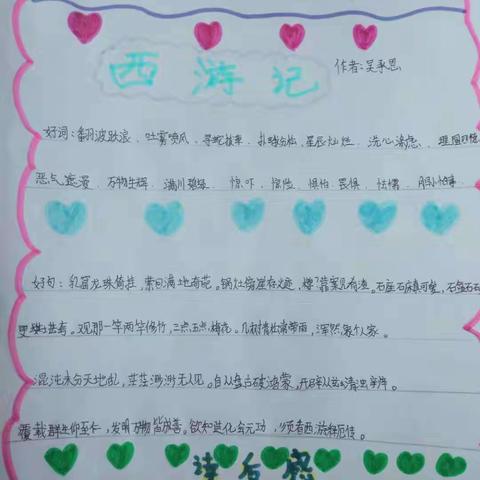 西游记
作者:吴承恩
好词:翻波跃浪、吐雾喷风、寻蛇技、星辰灿烂、洗心涤虑、
万物生辉、满川碧绿、惊吓、惊惶、惧怕、畏惧、怯懦、胆小怕事、
好句:乳窟龙珠倚挂,萦回满地奇花。锅灶傍崖存火迹,樽罍靠案见肴渣。石座石床真可爱,石盆石
更堪夸。又见那一竿两竿修竹,三点五点梅花。几树青松常带雨,浑然象个人家。
混沌未分天地乱,茫茫渺渺无人见。自从盘古破鸿蒙,开辟从兹清浊辨。
覆载群生仰至仁,发明万物皆成善。欲知造化会元功,须看西游释厄传。
读后感